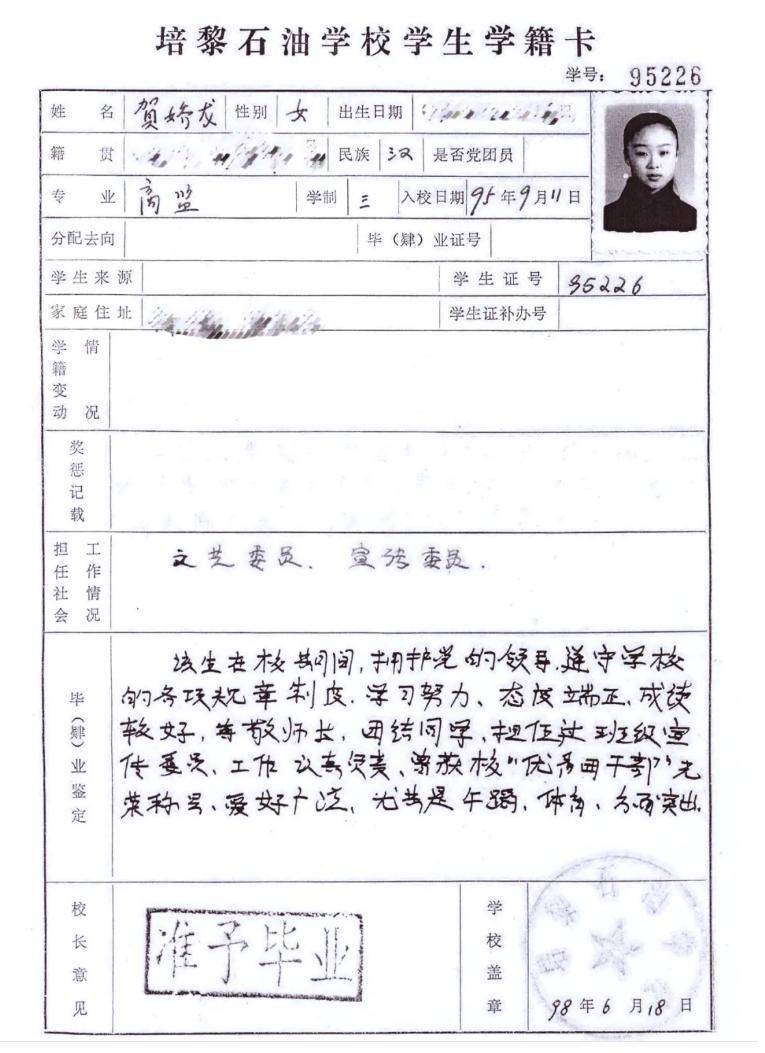 培黎石油学校学生学籍卡
学号: 95226
姓名 贺娇龙 性别 女 出生日期
籍贯 民族 汉 是否党团员
专业 商监 学制 三 入校日期 95年9月11日
分配去向 毕(肄)业证号
学生来源 学生证号 95226
家庭住址 学生证补办号
学籍变动情况
奖惩记载
担任社会工作情况 文艺委员、宣传委员.
毕(肄)业鉴定
该生在校期间,拥护党的领导,遵守学校
的各项规章制度.学习努力、态度端正、成绩
较好,尊敬师长,团结同学,担任过班级宣
传委员、工作认真负责、曾获校"优秀团干部"光
荣称号、爱好广泛,尤其是午蹈、体育、方面突出.
校长意见 准予毕业
学校盖章 98年6月18日